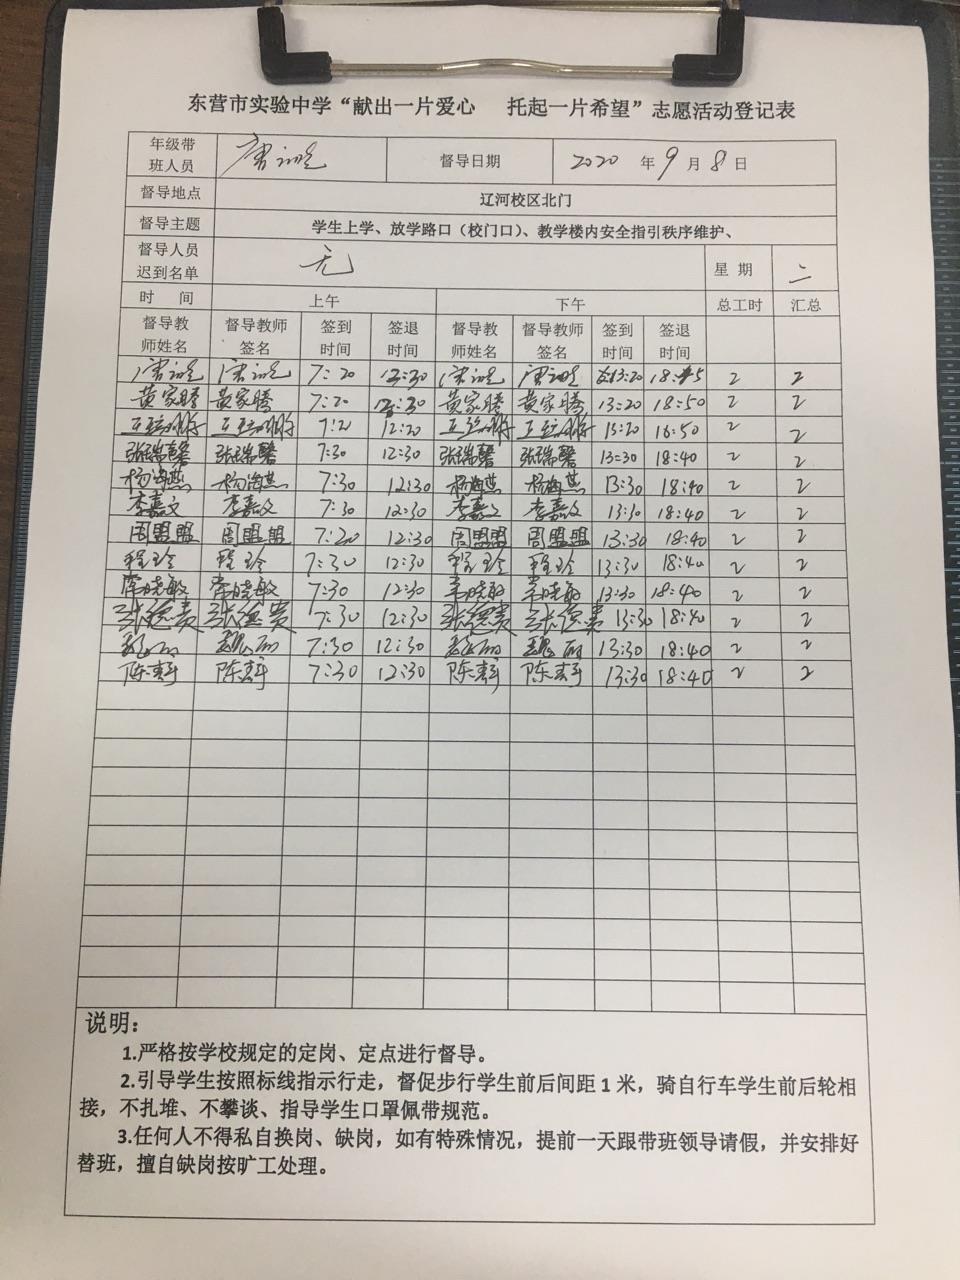 东营市实验中学“献出一片爱心 托起一片希望”志愿活动登记表
年级带班人员 督导日期 2020 年 9 月 8 日
督导地点 辽河校区北门
督导主题 学生上学、放学路口（校门口）、教学楼内安全指引秩序维护、
督导人员迟到名单 无 星 期 二
时 间 上午 下午 总工时 汇总
督导教师姓名 督导教师签名 签到时间 签退时间 督导教师姓名 督导教师签名 签到时间 签退时间
7:20 13:20 2 2
黄家腾 黄家腾 7:20 黄家腾 黄家腾 13:20 18:50 2 2
7:20 12:20 2 2
张瑞馨 张瑞馨 7:30 12:30 张瑞馨 张瑞馨 13:30 18:40 2 2
杨海燕 杨海燕 7:30 12:30 杨海燕 杨海燕 13:30 18:40 2 2
李嘉文 李嘉文 7:30 12:30 李嘉文 李嘉文 13:30 18:40 2 2
周盟盟 周盟盟 7:20 12:30 周盟盟 周盟盟 13:30 18:40 2 2
程玲 程玲 7:30 12:30 程玲 程玲 13:30 18:40 2 2
常晓敏 常晓敏 7:30 12:30 常晓敏 常晓敏 13:30 18:40 2 2
张德贵 张德贵 7:30 12:30 张德贵 张德贵 13:30 18:40 2 2
魏丽 魏丽 7:30 12:30 魏丽 魏丽 13:30 18:40 2 2
陈 陈 7:30 12:30 陈 陈 13:30 18:40 2 2
说明：
1.严格按学校规定的定岗、定点进行督导。
2.引导学生按照标线指示行走，督促步行学生前后间距 1 米，骑自行车学生前后轮相
接，不扎堆、不攀谈、指导学生口罩佩带规范。
3.任何人不得私自换岗、缺岗，如有特殊情况，提前一天跟带班领导请假，并安排好
替班，擅自缺岗按旷工处理。